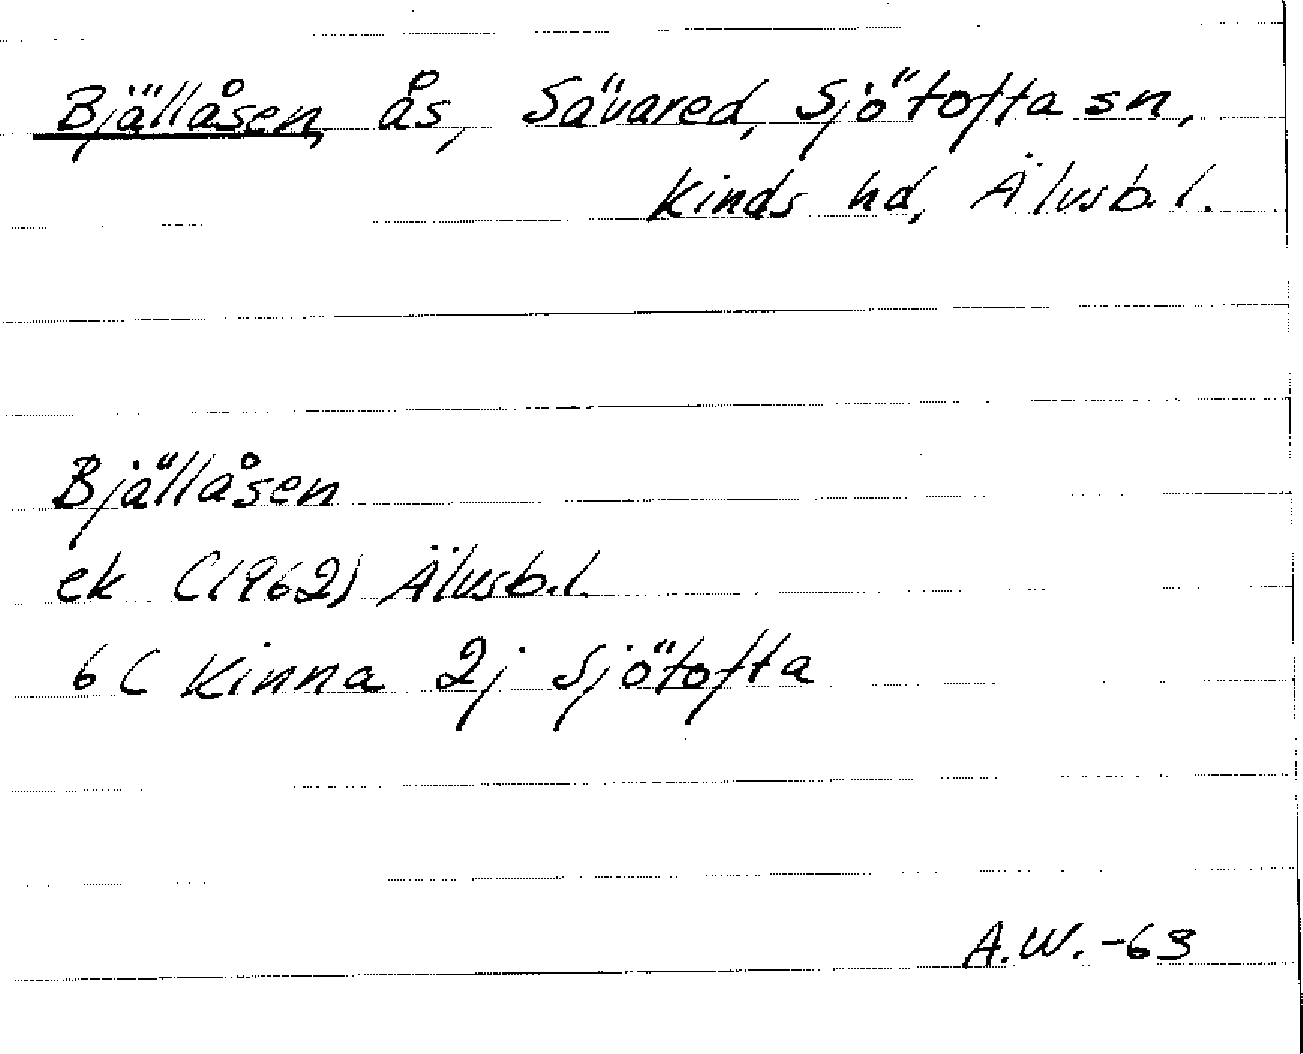 Bjällåsen, ås, Sävared, Sjötofta sn,
Kinds hd, Älvsb. l.
Bjällåsen
ek (1962) Älvsb. l.
6 C Kinna 2j Sjötofta
A.W. -63